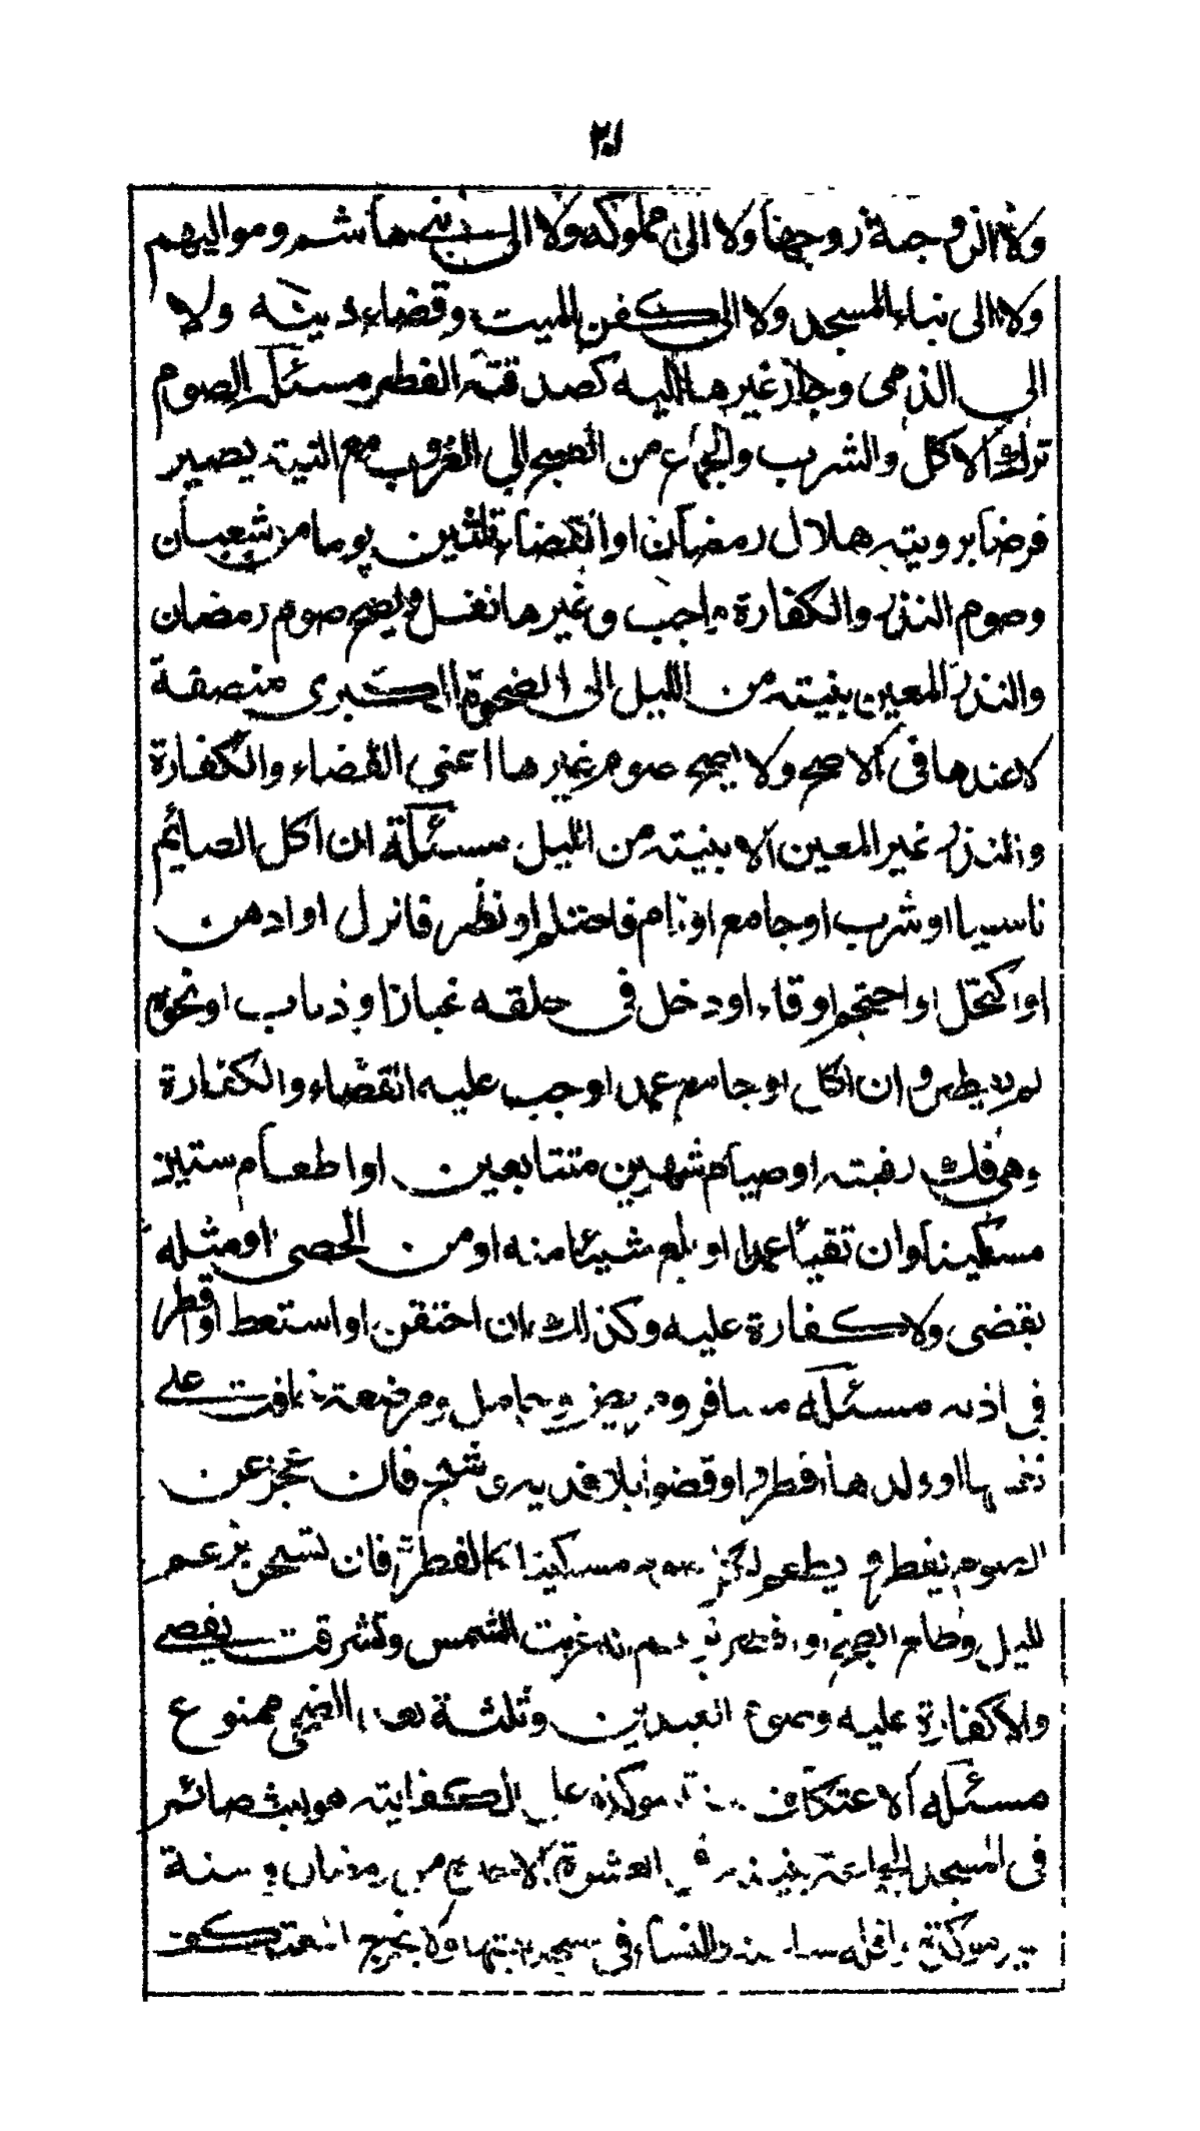 ٢٠١
ولا الزوجة زوجها ولا الى مملوكه ولا الى بني هاشم ومواليهم
ولا الى بناء المسجد ولا الى كفن الميت وقضاء دينه ولا
الى الذمى وجاز غيرها اليه كصدقة الفطر مسئلة الصوم
ترك الاكل والشرب والجماع من الصبح الى الغروب مع النية يصير
فرضا برويته هلال رمضان او انقضاء ثلثين يوما من شعبان
وصوم النذر والكفارة واجب وغيرها نفل ويصح صوم رمضان
والنذر المعين بنيته من الليل الى الضحوة الكبرى منصفة
لا عندها فى الاصح ولا يصح صوم غيرها اعني القضاء والكفارة
والنذر غير المعين الا بنيته من الليل مسئلة ان اكل الصائم
ناسيا او شرب او جامع او نام فاحتلم او نظر فانزل او ادهن
او اكتحل او احتجم او قاء او دخل فى حلقه غبار او ذباب او نحوه
لم يفطر وان اكل او جامع عمدا وجب عليه القضاء والكفارة
وهى فك رقبته او صيام شهرين متتابعين او اطعام ستين
مسكينا وان تقيأ عمدا او بلع شيئا منه او من الحصى او مثله
يقضى ولا كفارة عليه وكذلك ان احتقن او استعط او قطر
في اذنه مسئلة مسافر ومريض وحامل ومرضعة خافت على
نفسها او ولدها افطروا وقضوا بلا فدية شيخ فان عجز عن
الصوم يفطر ويطعم لكل يوم مسكينا كالفطرة فان تسحر بزعم
الليل وطلع الصبح او افطر بزعم انه غربت الشمس وتشرقت يقضي
ولا كفارة عليه وصوم العيدين وثلثة بعد الضحى ممنوع
مسئلة الاعتكاف سنة موكدة على الكفاية هو لبث صائم
فى المسجد الجماعة بنية فى العشرة الاخير من رمضان وسنة
غير موكدة واقله ساعة والنساء فى مسجد بيتها ولا يخرج المعتكف